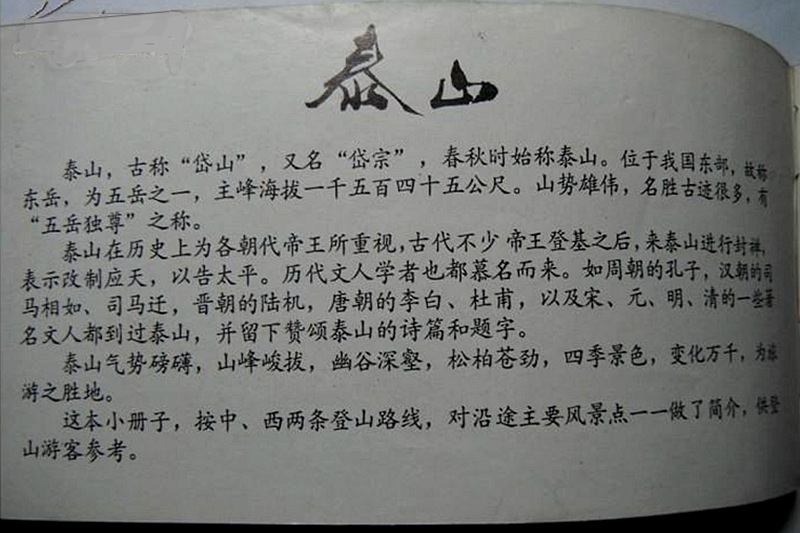 泰山
泰山，古称“岱山”，又名“岱宗”，春秋时始称泰山。位于我国东部，故称
东岳，为五岳之一，主峰海拔一千五百四十五公尺。山势雄伟，名胜古迹很多，有
“五岳独尊”之称。
泰山在历史上为各朝代帝王所重视，古代不少帝王登基之后，来泰山进行封禅，
表示改制应天，以告太平。历代文人学者也都慕名而来。如周朝的孔子，汉朝的司
马相如、司马迁，晋朝的陆机，唐朝的李白、杜甫，以及宋、元、明、清的一些著
名文人都到过泰山，并留下赞颂泰山的诗篇和题字。
泰山气势磅礴，山峰峻拔，幽谷深壑，松柏苍劲，四季景色，变化万千，为旅
游之胜地。
这本小册子，按中、西两条登山路线，对沿途主要风景点一一做了简介，供登
山游客参考。